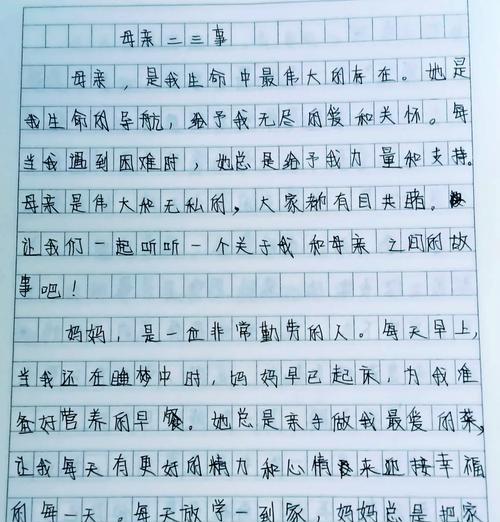 母亲二三事
母亲，是我生命中最伟大的存在。她是
我生命的导航，给予我无尽的爱和关怀。每
当我遇到困难时，她总是给予我力量和支持。
母亲是伟大和无私的，大家都有目共睹。
让我们一起听听一个关于我和母亲之间的故
事吧！
妈妈，是一位非常勤劳的人。每天早上，
当我还在睡梦中时，妈妈早已起床，为我准
备好营养的早餐。她总是亲手做我最爱的菜，
让我每天有更好的精力和心情来迎接幸福
的每一天。每天放学一到家，妈妈总是把家